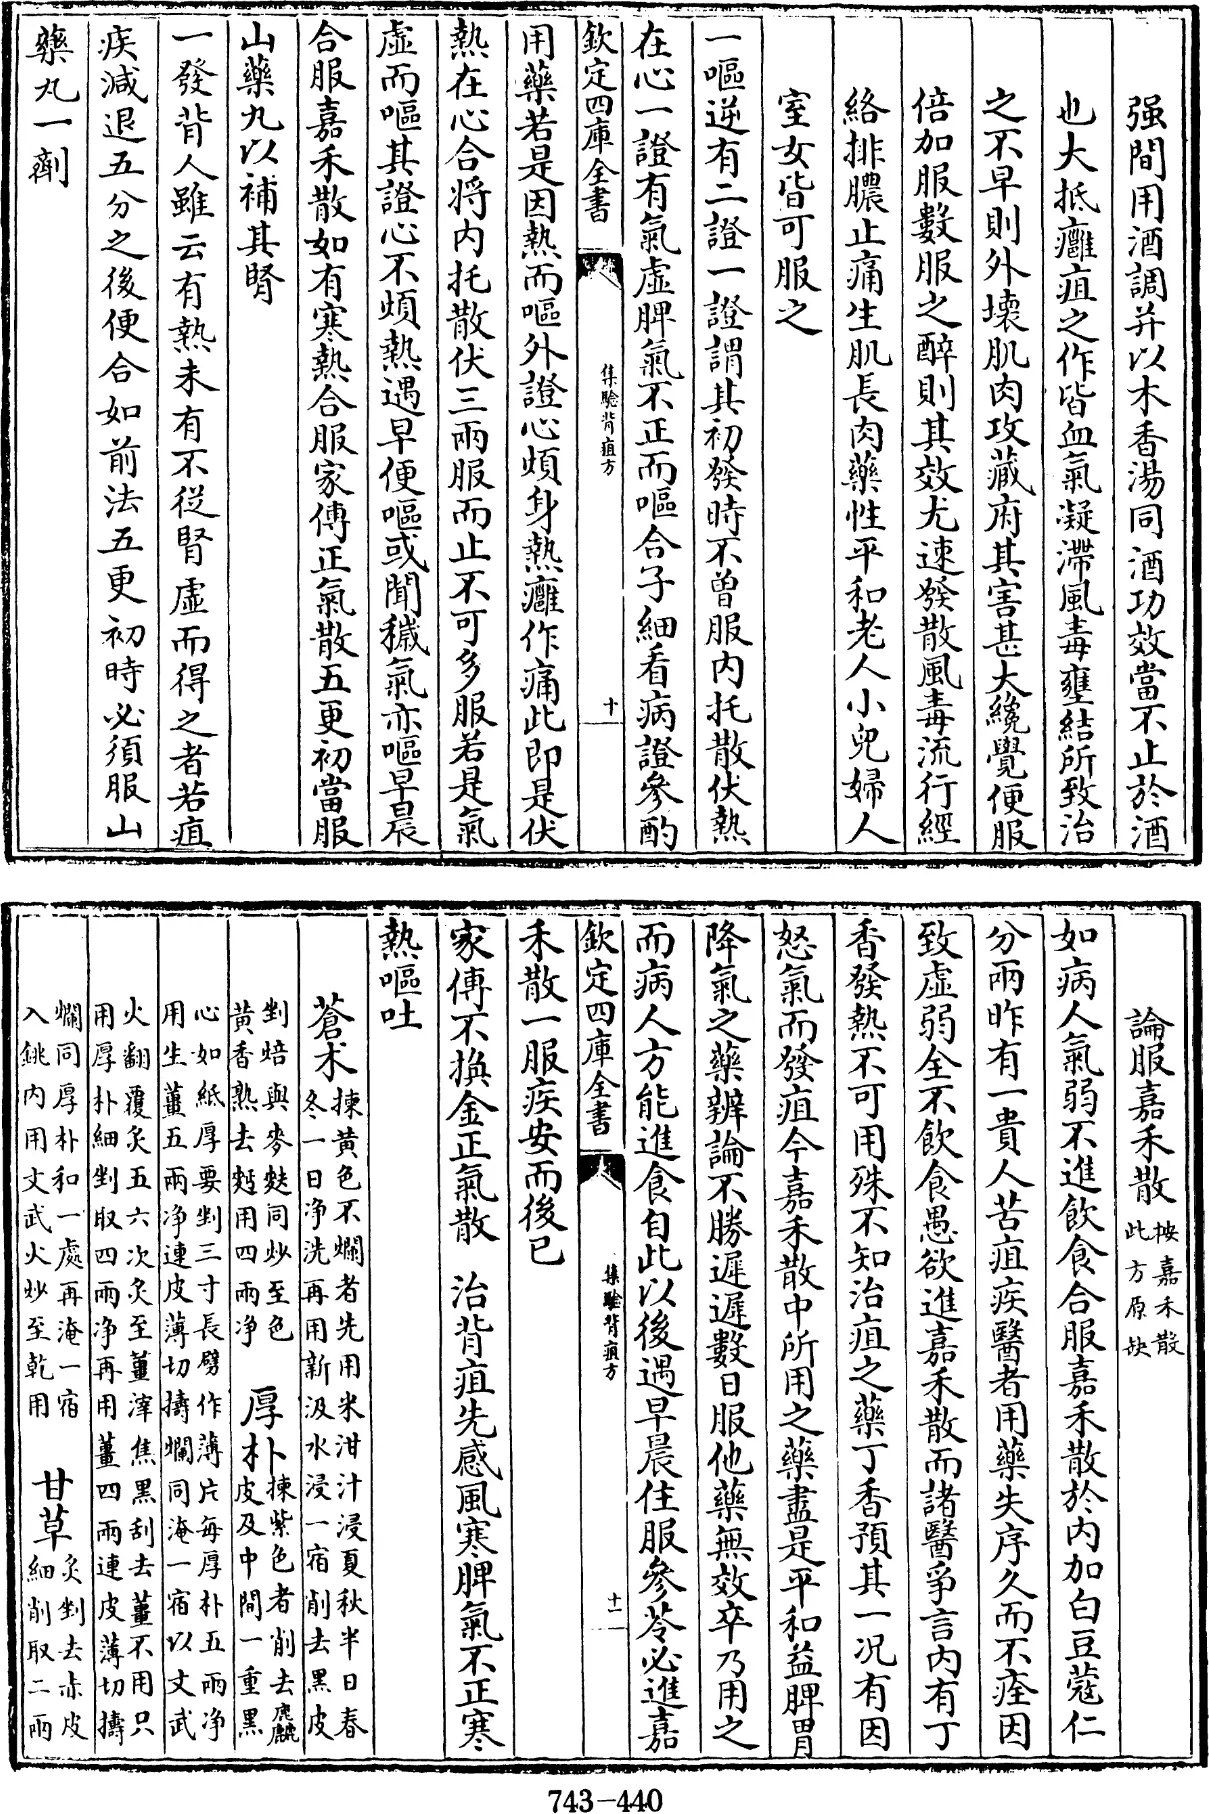 强間用酒調并以木香湯同酒功效當不止於酒
也大抵癰疽之作皆血氣凝滯風毒壅結所致治
之不早則外壞肌肉攻藏府其害甚大纔覺便服
倍加服數服之醉則其效尤速發散風毒流行經
絡排膿止痛生肌長肉藥性平和老人小兒婦人
室女皆可服之
一嘔逆有二證一證謂其初發時不曾服内托散伏熱
在心一證有氣虛脾氣不正而嘔合子細看病證參酌
欽定四庫全書
集驗背疽方
十
用藥若是因熱而嘔外證心煩身熱癰作痛此即是伏
熱在心合將内托散伏三兩服而止不可多服若是氣
虛而嘔其證心不煩熱遇早便嘔或聞穢氣亦嘔早晨
合服嘉禾散如有寒熱合服家傳正氣散五更初當服
山藥丸以補其腎
一發背人雖云有熱未有不從腎虛而得之者若疽
疾減退五分之後便合如前法五更初時必須服山
藥丸一劑
論服嘉禾散按嘉禾散
此方原缺
如病人氣弱不進飲食合服嘉禾散於内加白豆蔻仁
分兩昨有一貴人苦疽疾醫者用藥失序久而不痊因
致虛弱全不飲食愚欲進嘉禾散而諸醫爭言内有丁
香發熱不可用殊不知治疽之藥丁香預其一况有因
怒氣而發疽今嘉禾散中所用之藥盡是平和益脾胃
降氣之藥辨論不勝遲遲數日服他藥無效卒乃用之
而病人方能進食自此以後遇早晨住服參苓必進嘉
欽定四庫全書
集驗背疽方
十一
禾散一服疾安而後已
家傳不換金正氣散 治背疽先感風寒脾氣不正寒
熱嘔吐
蒼术揀黄色不爛者先用米泔汁浸夏秋半日春
冬一日净洗再用新汲水浸一宿削去黑皮
剉焙與麥麩同炒至色
黄香熟去麩用四兩净
厚朴揀紫色者削去麤
皮及中間一重黑
心如紙厚要剉三寸長劈作薄片每厚朴五兩净
用生薑五兩净連皮薄切擣爛同淹一宿以文武
火翻覆炙五六次炙至薑滓焦黑刮去薑不用只
用厚朴細剉取四兩净再用薑四兩連皮薄切擣
爛同厚朴和一處再淹一宿
入銚内用文武火炒至乾用
甘草炙剉去赤皮
細削取二兩
743-440